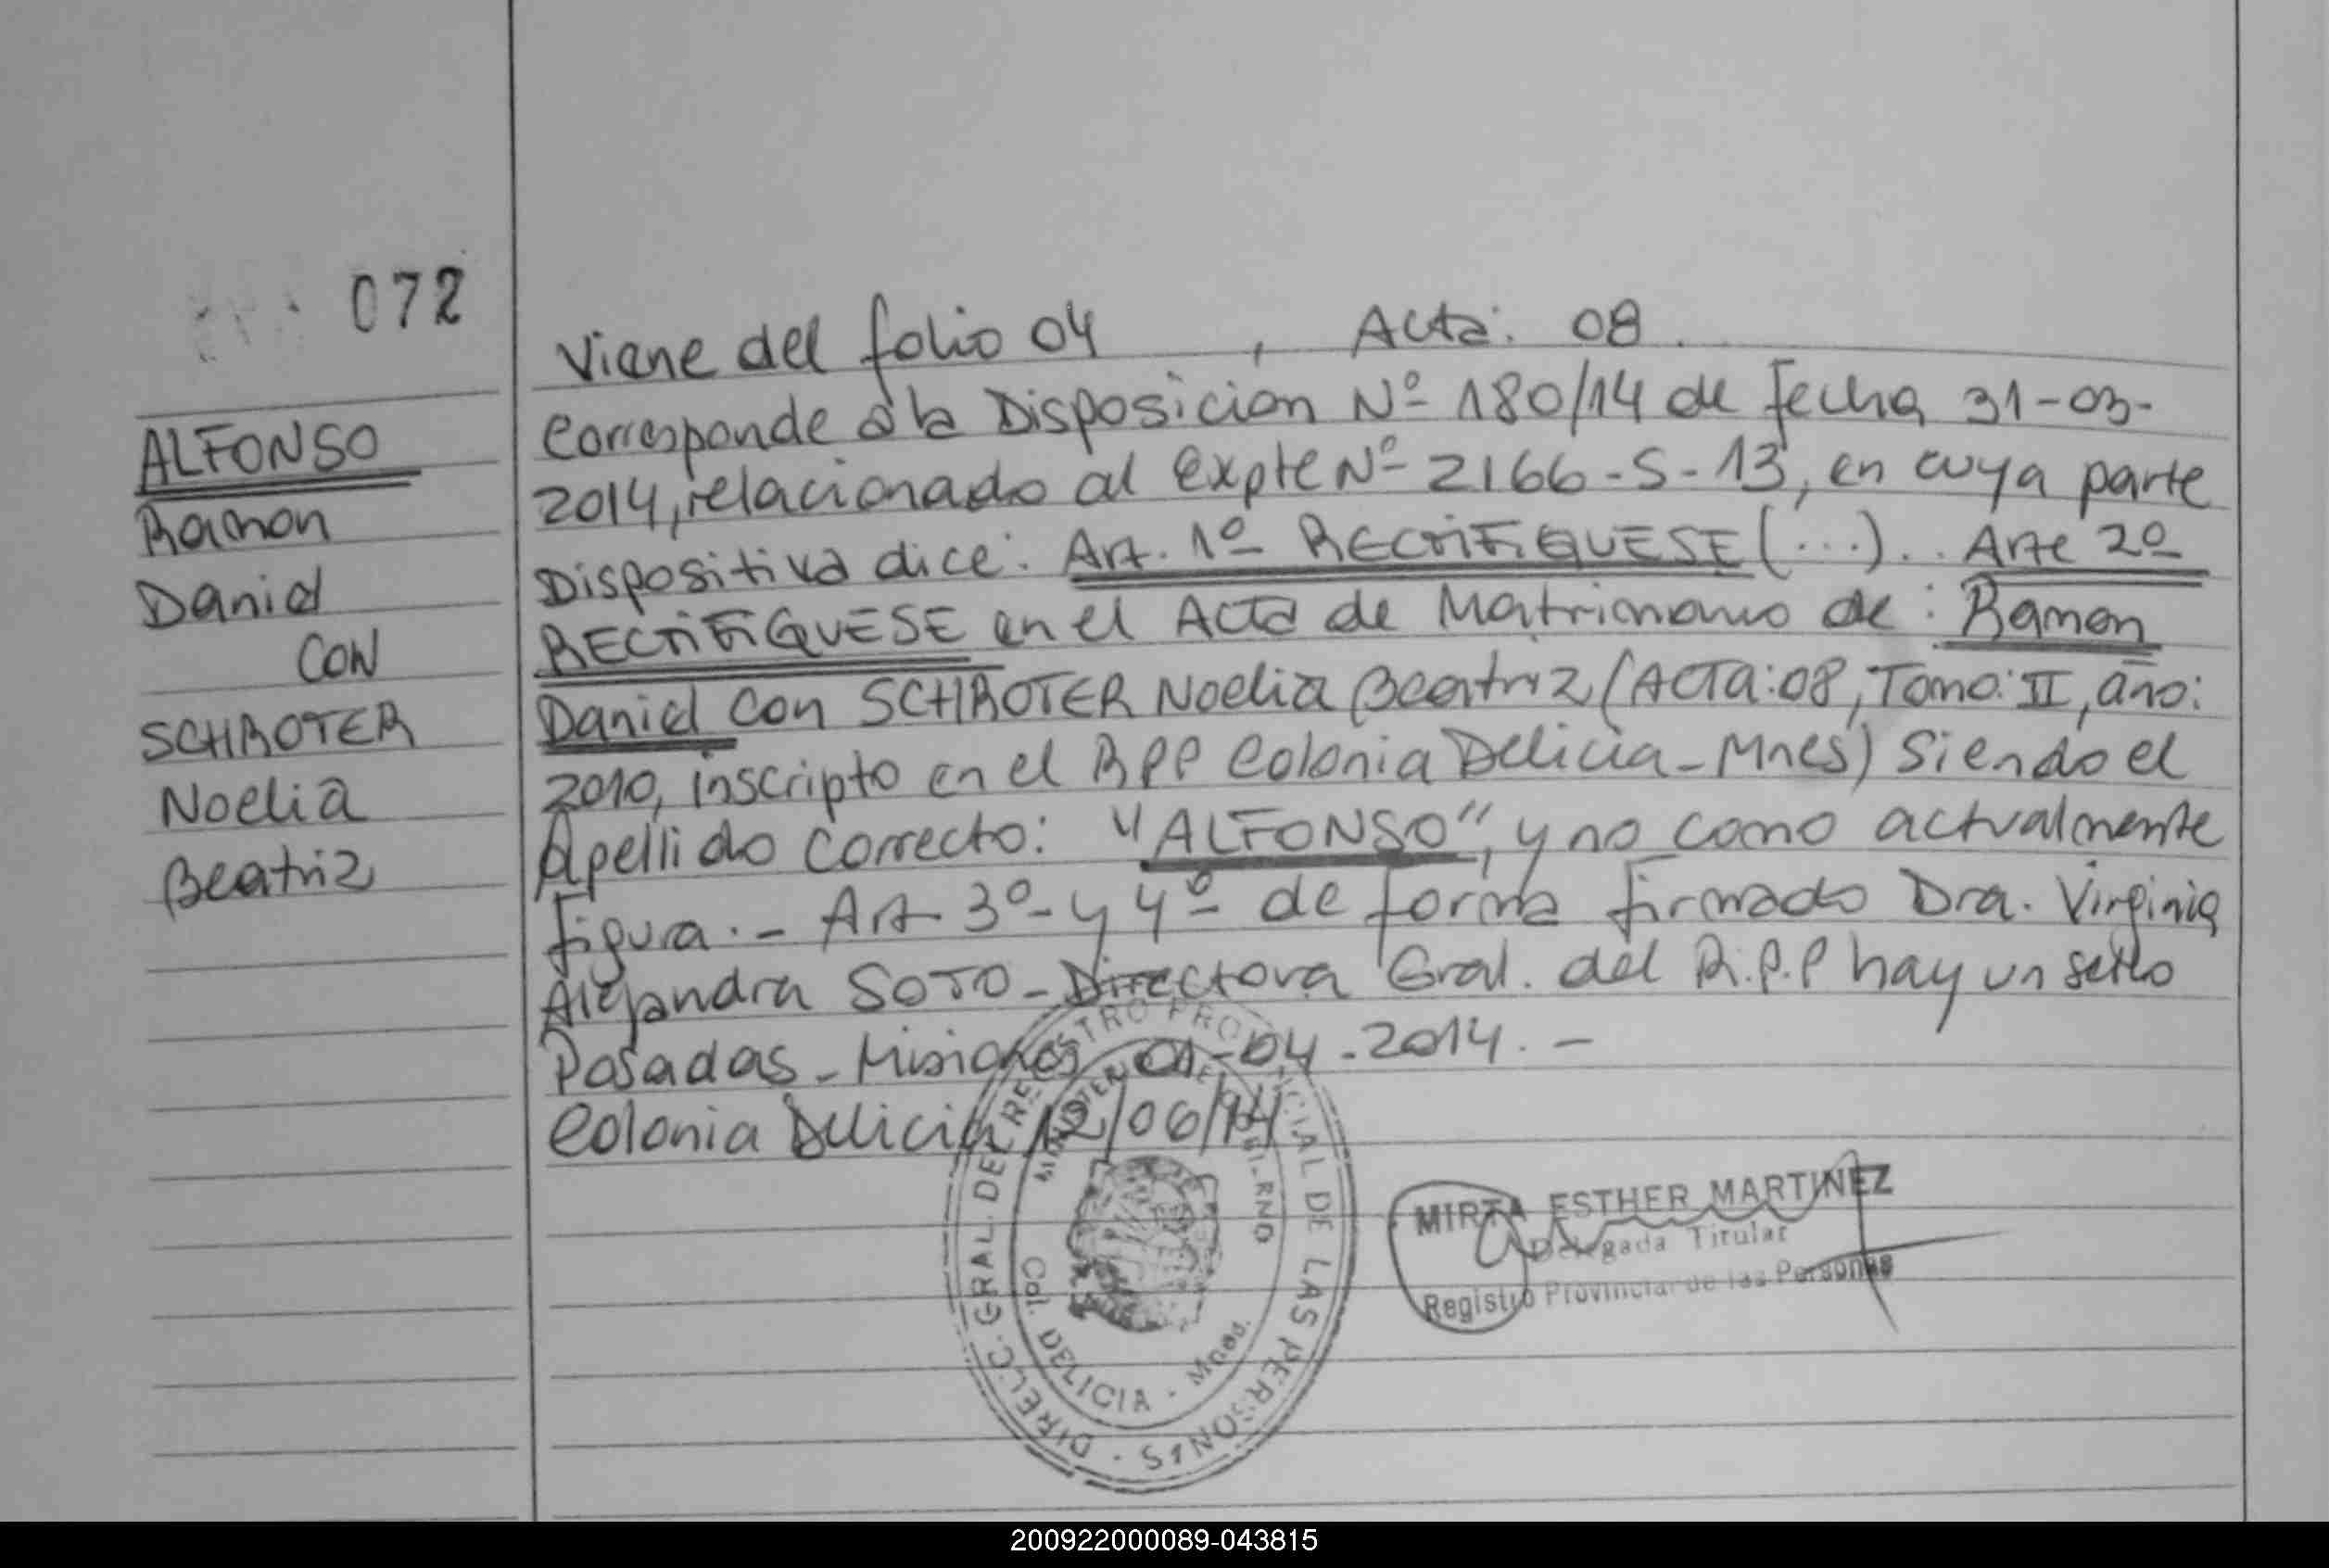 072
ALFONSO
Ramon
Daniel
CON
SCHROTER
Noelia
Beatriz
Viene del folio 04 , Acta: 08.
Corresponde a la Disposicion Nº 180/14 de fecha 31-03-
2014, relacionado al Expte Nº 2166-S-13, en cuya parte
Dispositiva dice: Art. 1º RECTIFIQUESE (...).. Arte 2º
RECTIFIQUESE en el Acta de Matrimonio de: Ramon
Daniel con SCHROTER Noelia Beatriz (ACTA:08, Tomo: II, año:
2010, inscripto en el RPP Colonia Delicia-Mnes) Siendo el
Apellido correcto: "ALFONSO", y no como actualmente
figura.- Art 3º- y 4º- de forma firmado Dra. Virginia
Alejandra SOTO-Directora Gral. del R.P.P hay un sello
Posadas-Misiones 01-04-2014.-
Colonia Delicia 12/06/14
DIRECC. GRAL. DEL REGISTRO PROVINCIAL DE LAS PERSONAS
MINISTERIO DE GOBIERNO
Col. DELICIA - Mnes.
MIRTA ESTHER MARTINEZ
Delegada Titular
Registro Provincial de las Personas
200922000089-043815